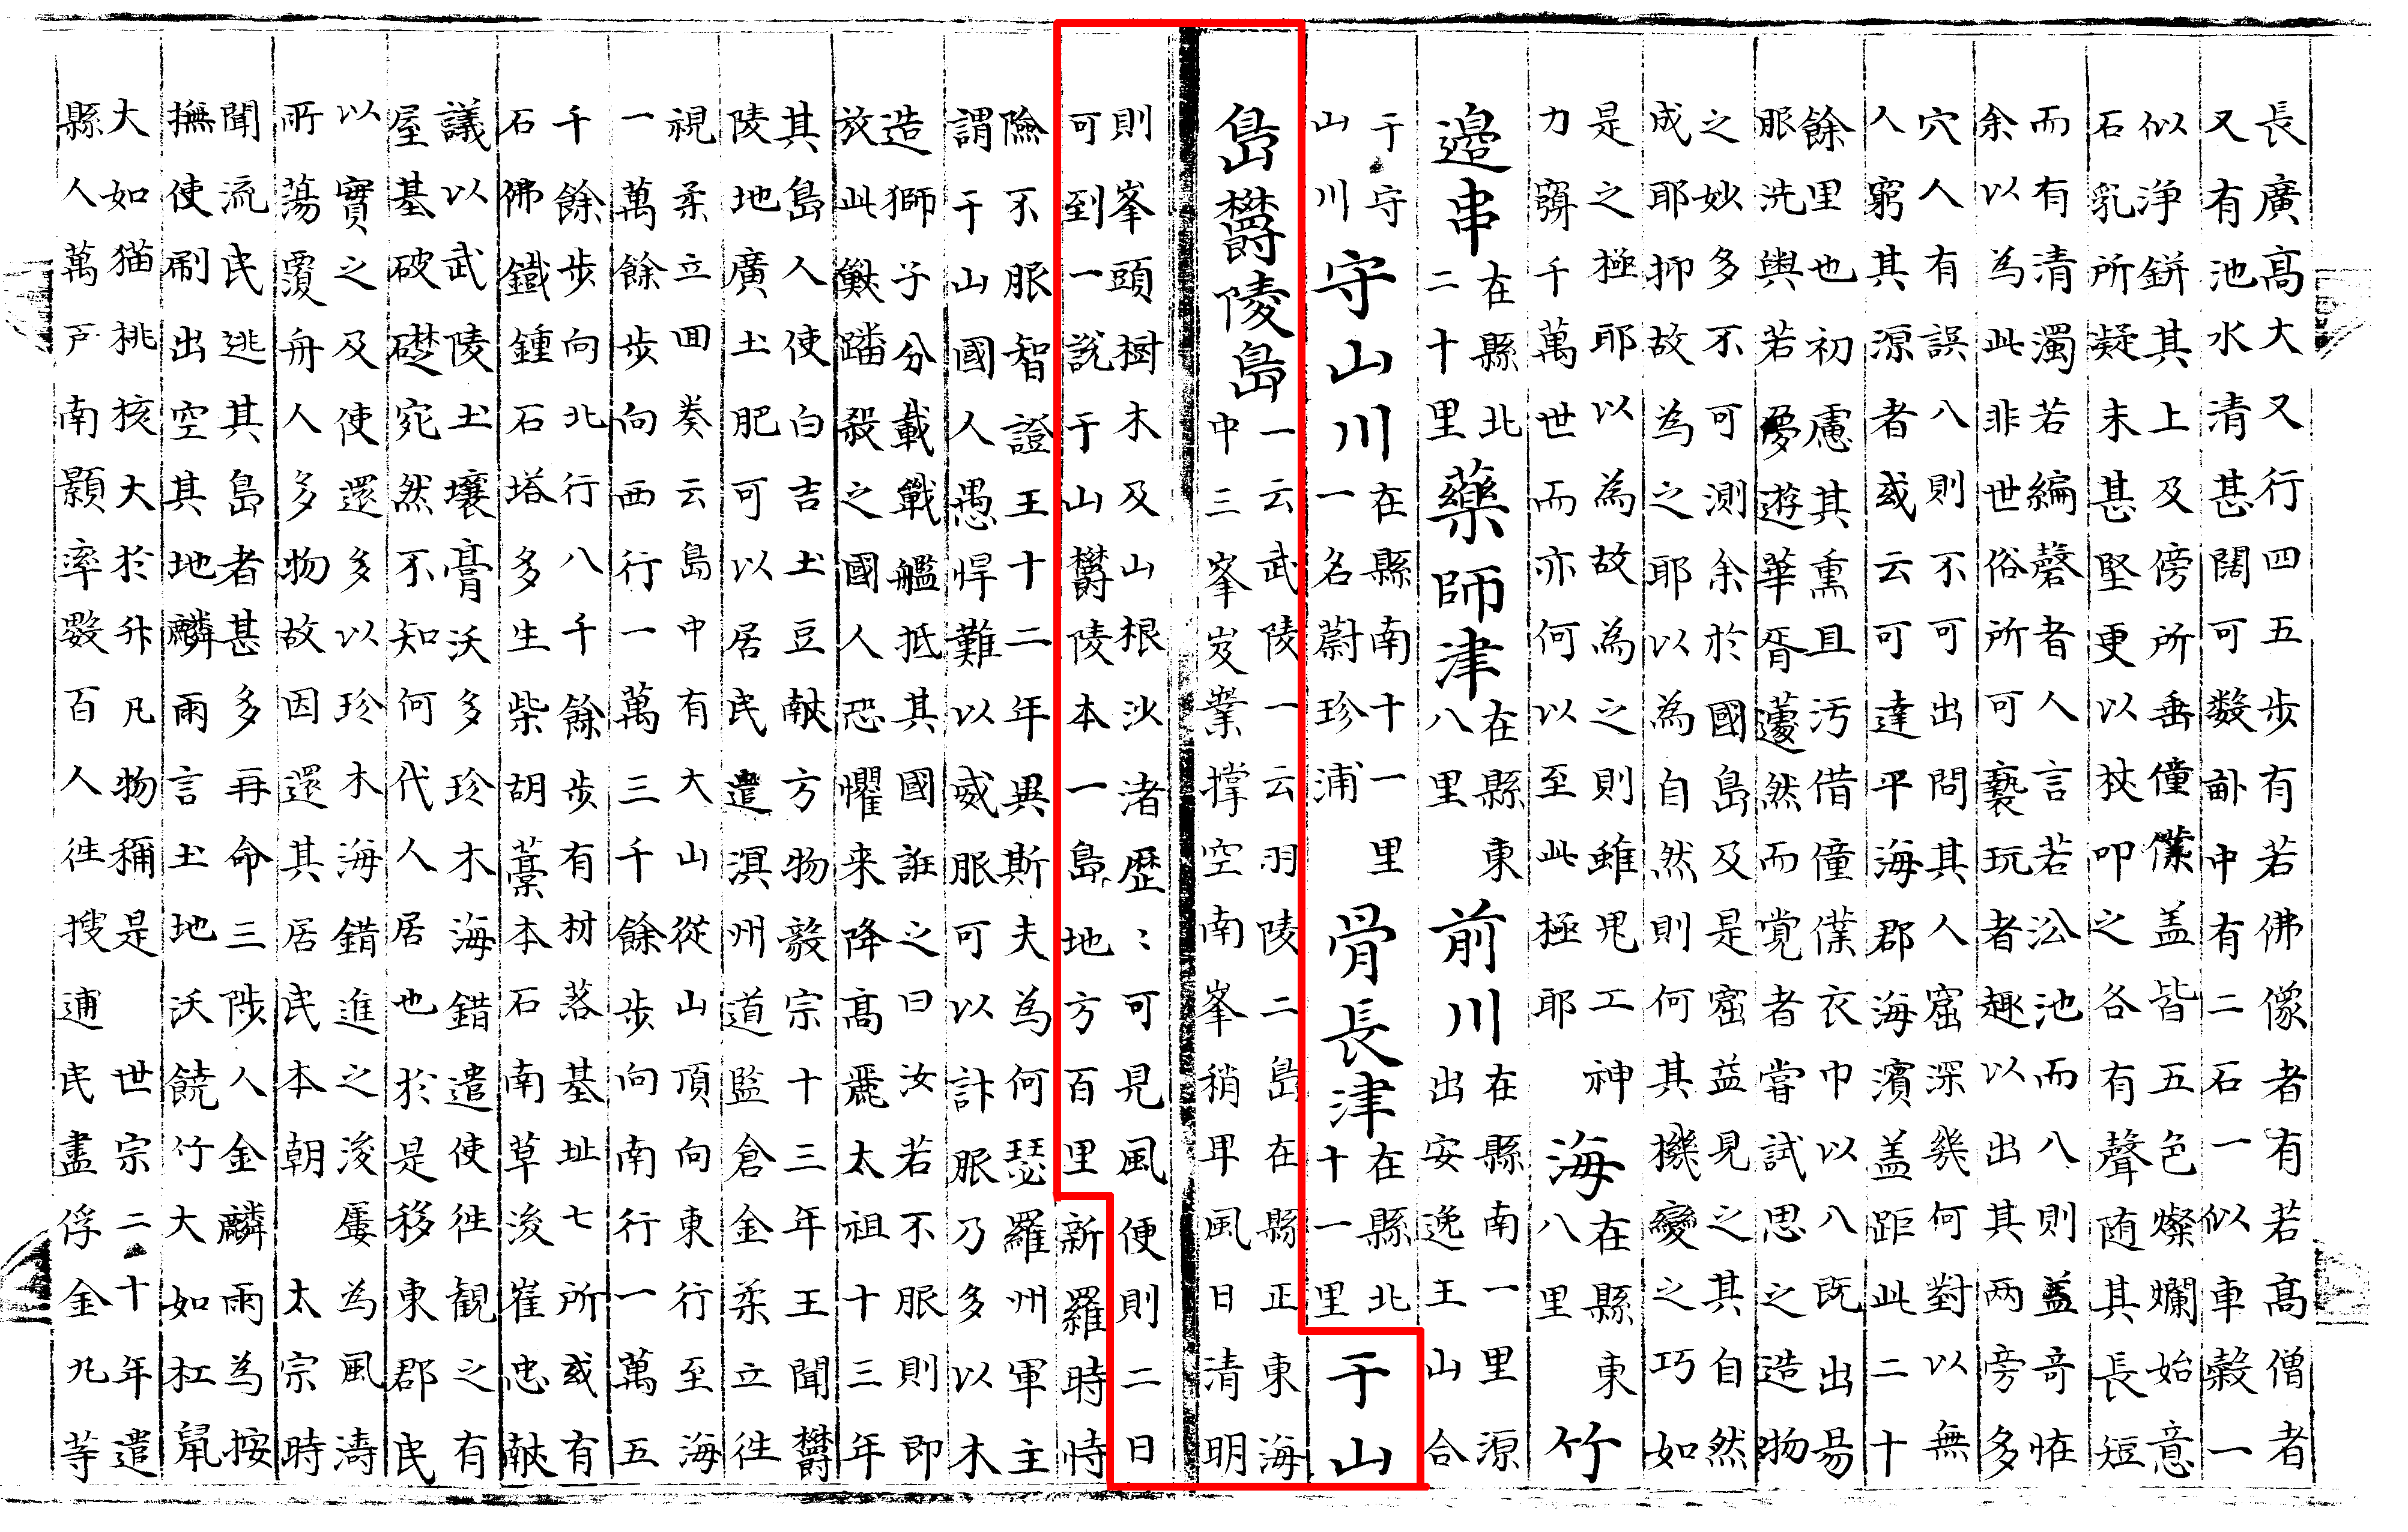 長廣髙大又行四五步有若佛像者有若髙僧者
又有池水清甚闊可數畝中有二石一似車轂一
似浄鉼其上及傍所垂僮僕盖皆五色燦爛始意
石乳所凝未甚堅更以杖叩之各有聲随其長短
而有清濁若編磬者人言若㳂池而八則盖竒恠
余以為此非世俗所可褻玩者趣以出其兩旁多
穴人有誤八則不可出問其人窟深㡬何對以無
人窮其源者或云可達平海郡海濵盖距此二十
餘里也初慮其熏且污借僮僕衣巾以八既出昜
服洗輿若夢遊華胥蘧然而覺者嘗試思之造物
之妙多不可測余於國島及是窟益見之其自然
成耶抑故為之耶以為自然則何其機變之巧如
是之極耶以為故為之則雖鬼工神
力窮千萬世而亦何以至此極耶
海在縣東八里竹
邉串在縣北二十里藥師津在縣東八里前川在縣南一里源出安逸王山合
于守山川守山川在縣南十一里一名蔚珍浦骨長津在縣北十一里于山
島欝陵島一云武陵一云羽陵二島在縣正東海
中三峯岌嶪撑空南峯稍卑風日清明
則峯頭樹木及山根沙渚歷〻可見風便則二日
可到一說于山欝陵本一島地方百里新羅時恃
險不服智證王十二年異斯夫為何瑟羅州軍主
謂于山國人愚悍難以威服可以計服乃多以木
造獅子分載戰艦抵其國誑之曰汝若不服則即
放此獸踏殺之國人恐懼来降髙麗太祖十三年
其島人使白吉土豆献方物毅宗十三年王聞欝
陵地廣土肥可以居民遣溟州道監倉金柔立徃
視柔立囬奏云島中有大山從山頂向東行至海
一萬餘步向西行一萬三千餘步向南行一萬五
千餘步向北行八千餘步有村落基址七所或有
石佛鐵鍾石塔多生柴胡藁本石南草後崔忠献
議以武陵土壤膏沃多珍木海錯遣使徃觀之有
屋基破礎宛然不知何代人居也於是移東郡民
以實之及使還多以珍木海錯進之後屢為風濤
所蕩覆舟人多物故因還其居民本朝太宗時
聞流民逃其島者甚多再命三陟人金麟雨為按
撫使刷出空其地麟雨言土地沃饒竹大如杠鼠
大如猫桃核大於升凡物稱是世宗二十年遣
縣人萬戶南顥率數百人徃搜逋民盡俘金丸等